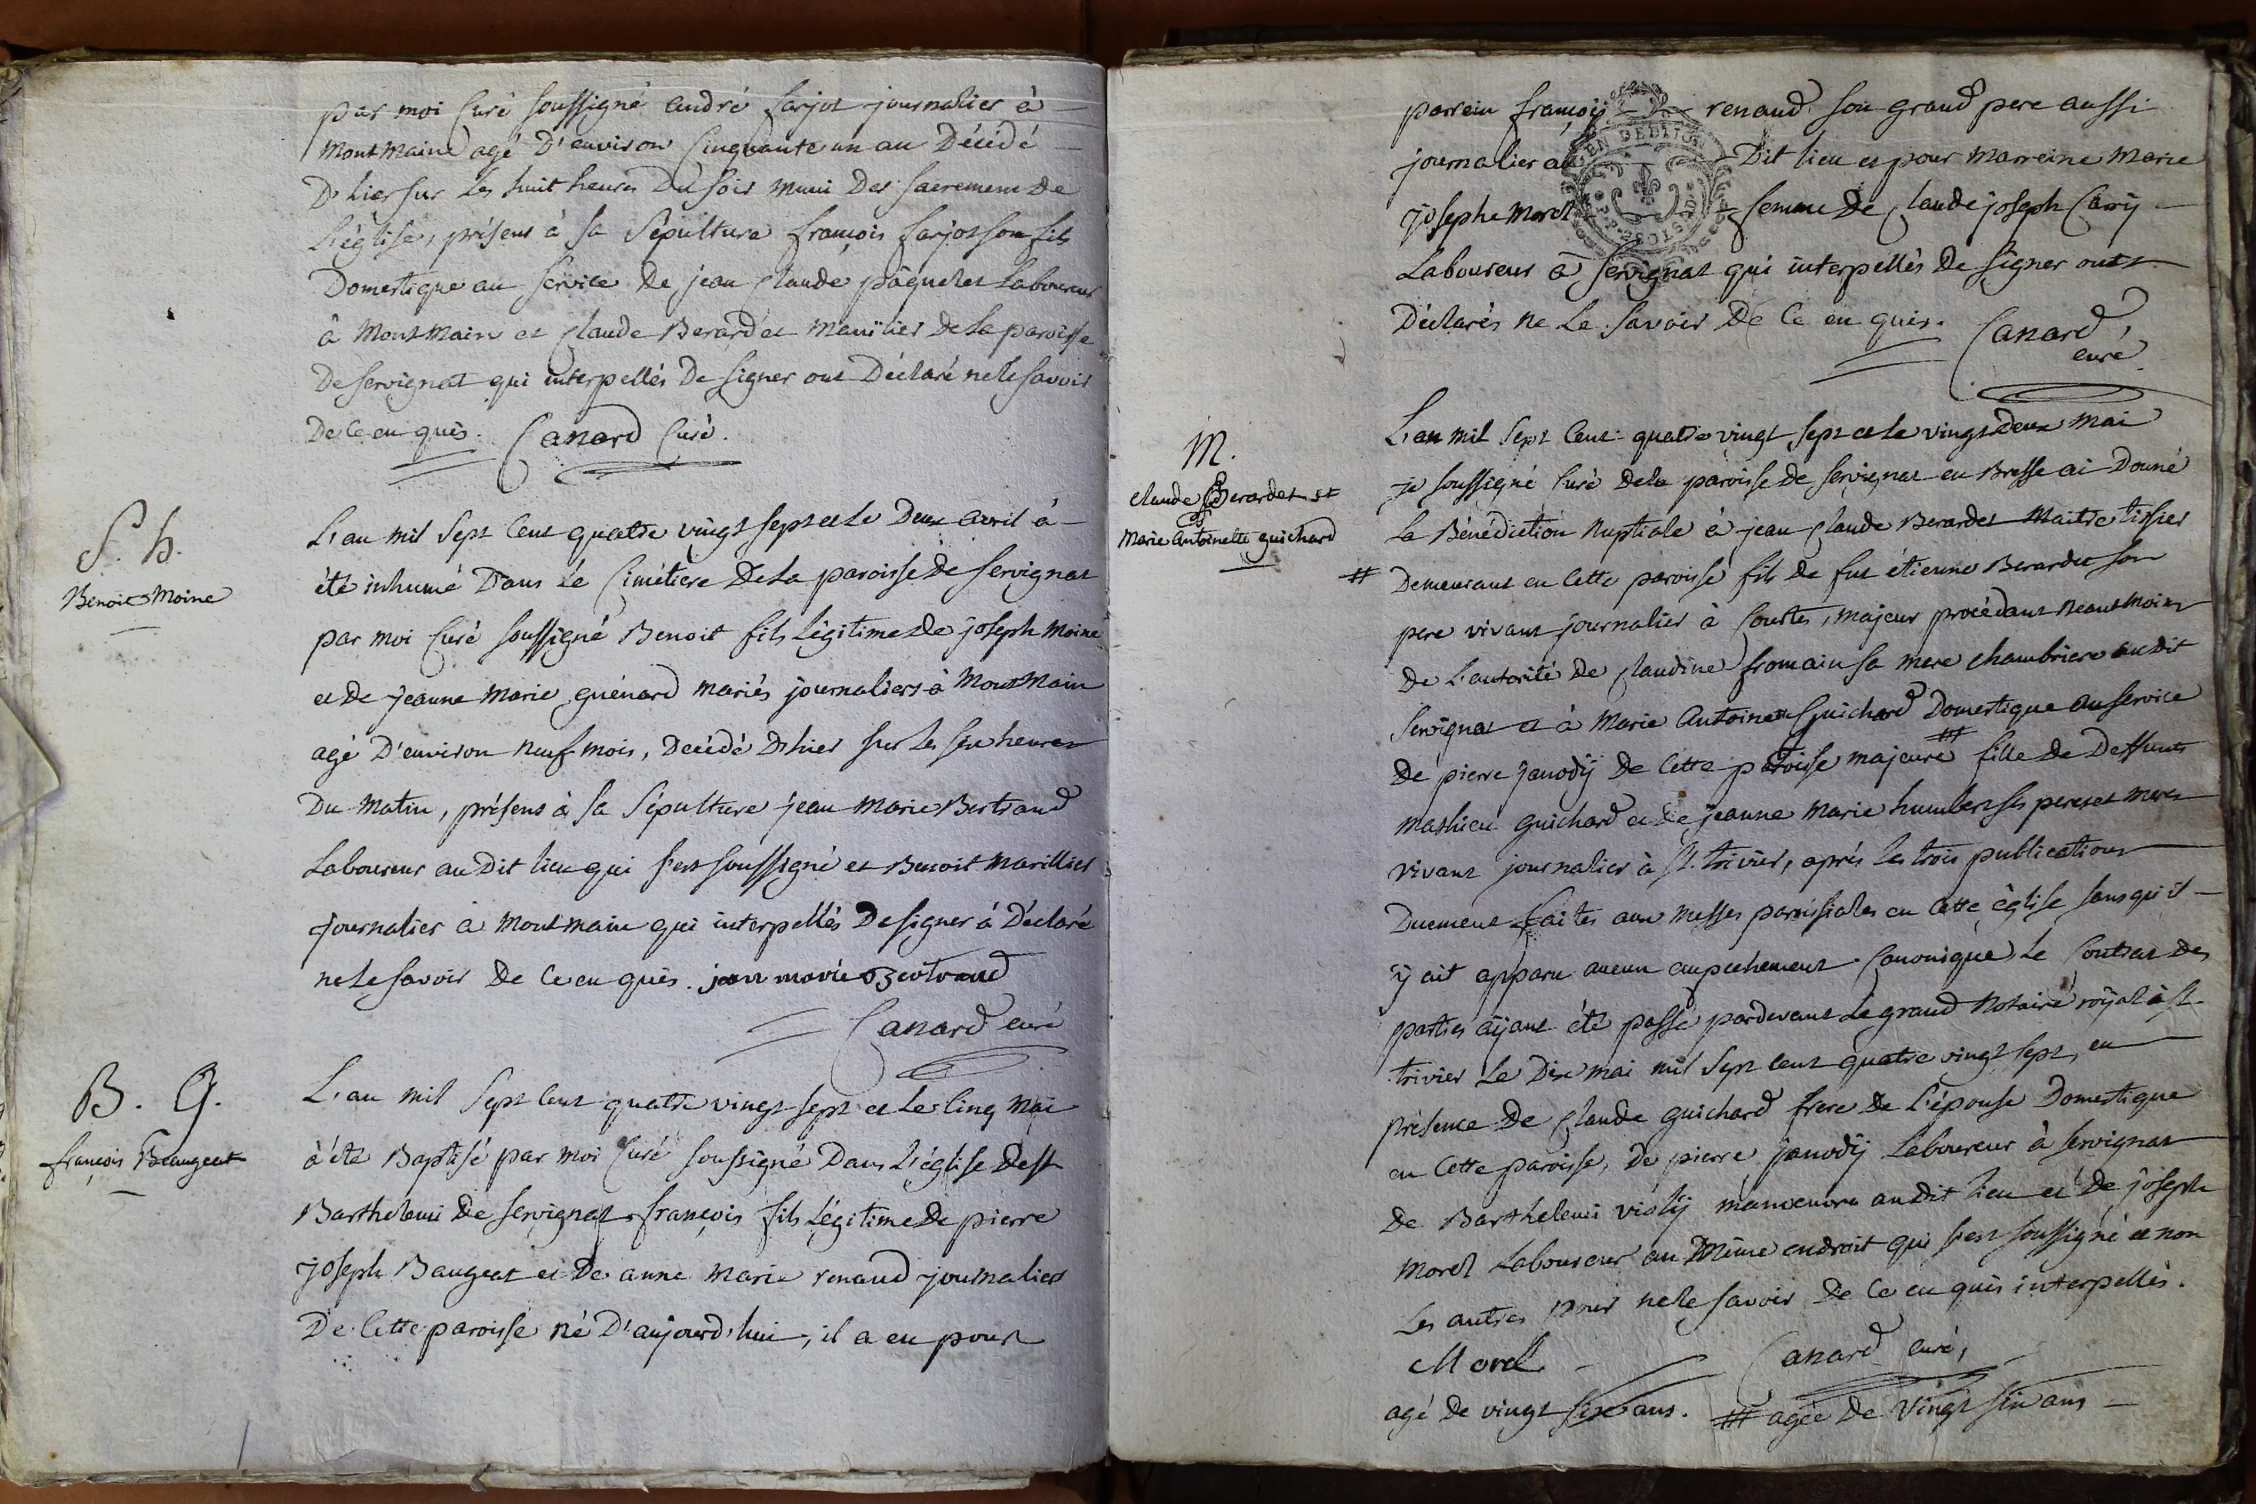 par moi Curé soussigné andré farjot journalier à
montmain agé D'environ Cinquante un an Décédé
D'hier sur les huit heures Du soir muni Des sacremens De
L'église, présens à sa Sépulture françois farjot son fils
Domestique au service De jean Claude pâquelet Laboureur
à Montmain et Claude Berardet manilier De la paroisse
De servignat qui interpellés De signer ont Déclaré ne le savoir
De Ce en quis. Canard Curé.
S. h.
Benoit Moine
L'an mil sept Cent quatre vingt sept et le Deux avril à
été inhumé Dans Le Cimétiere De La paroisse De servignat
par moi Curé soussigné Benoit fils Légitime De joseph Moine
et De jeanne Marie guénard mariés journaliers à Montmain
agé D'environ neuf mois, Décédé D'hier sur les six heures
Du matin, présens à sa Sépulture jean marie Bertrand
Laboureur au Dit lieu qui s'est soussigné et Benoit Marillier
journalier à Montmain qui interpéllés De signer à Déclaré
ne le savoir De Ce en quis. jean marie Bertrand
Canard curé
B. G.
françois Beaugeat
L'an mil Sept Cent quatre vingt sept et Le Cinq Mai
à été Baptisé par moi Curé soussigné Dans L'église De st
Barthelemi De servignat françois fils Légitime De pierre
joseph Baugeat et De anne Marie renaud journalier
De Cette paroisse né D'aujourd'hui, il a eu pour
parrein françois renaud son grand pere aussi
journalier au Dit lieu et pour marreine Marie
josephe Morel femme De Claude joseph Carry
Laboureur à servignat qui interpellés De signer ont
Déclarés ne Le Savoir De Ce en quis. Canard,
curé
M.
claude Berardet et
Marie antoinette guichard
L'an mil sept Cent quatre vingt sept et le vingt deux mai
je soussigné Curé De la paroisse de servignat en Bresse ai Donné
La Bénédiction Nuptiale à jean Claude Berardet Maitre tissier
# Demeurant en Cette paroisse fils de fut étienne Berardet son
pere vivant journalier à Courtes, majeur procédant Neantmoins
De L'autorité De Claudine fromain sa mere chambriere audit
Servignat et à Marie Antoinette Guichard Domestique au service
De pierre janodÿ De Cette paroisse majeure # fille De Deffunts
mathieu guichard et De jeanne Marie humbert ses peres et meres
vivant journalier à st. trivier, aprés Les trois publications
Duement faites aux Messes paroissiales en Cette église sans qu'il
ÿ ait apparu aucun empechement Canonique, Le Contrat Des
parties aÿant été passé pardevant Legrand Notaire roÿal à st
trivier Le Dix mai mil Sept Cent quatre vingt sept, en
présence De Claude guichard frere De L'épouse Domestique
en Cette paroisse, De pierre janodÿ Laboureur à servignat
De Barthelemi violÿ manoeuvre audit lieu et De joseph
Morel Laboureur au Même endroit qui s'est soussigné et non
Les autres pour ne le savoir De Ce en quis interpellés.
Morel Canard curé,
agé De vingt six ans. # agée De Vingt six ans